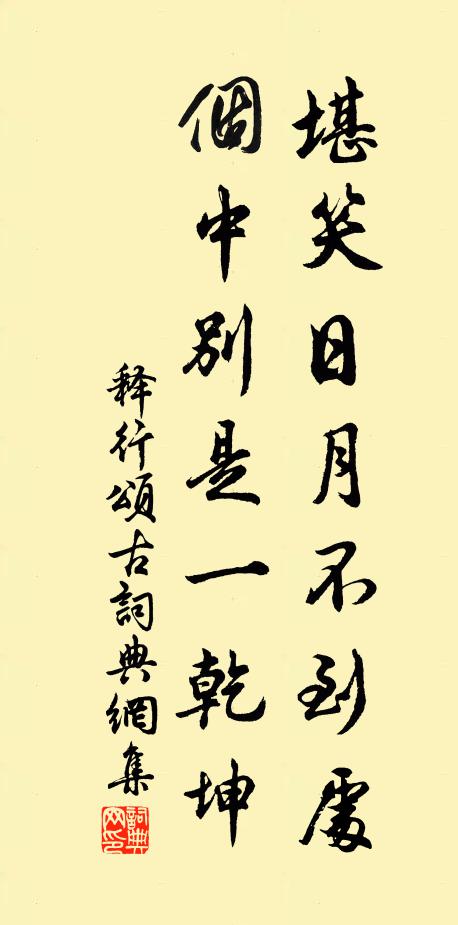 堪笑日月不到處
個中別是一乾坤
释行頌古詞典網集
詞典網印